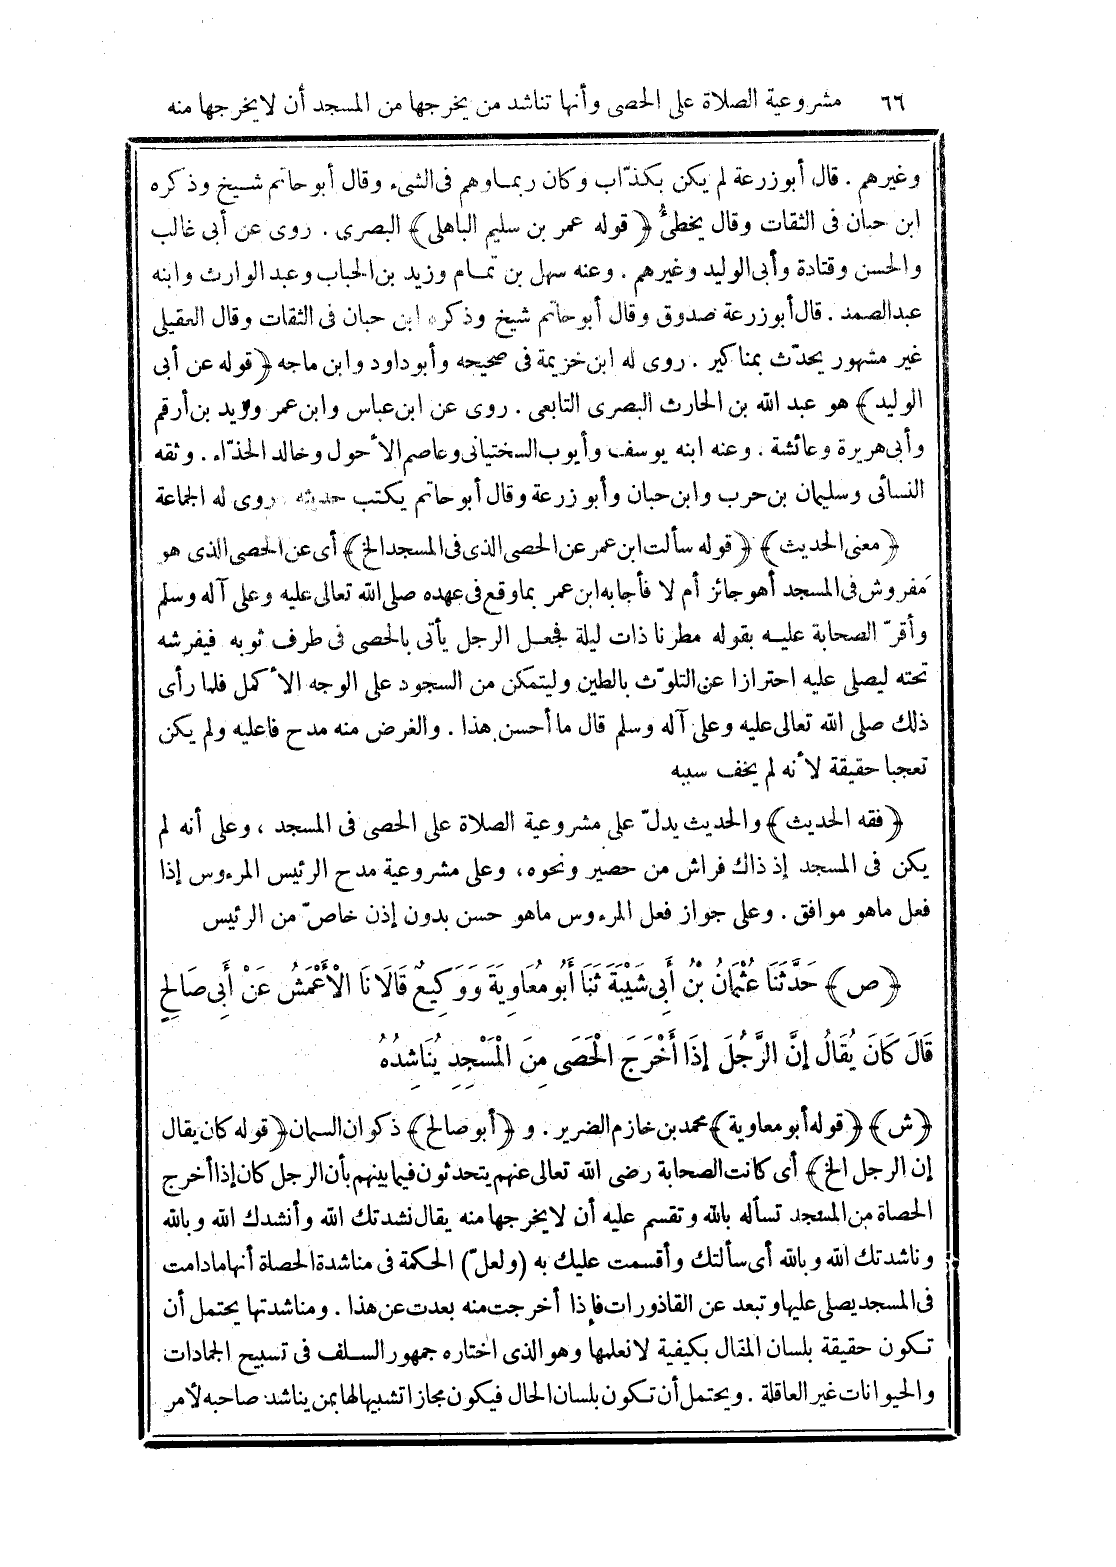 ٦٦ مشروعية الصلاة على الحصى وأنها تناشد من يخرجها من المسجد أن لايخرجها منه
وغيرهم . قال أبوزرعة لم يكن بكذّاب وكان ربماوهم فى الشىء وقال أبوحاتم شيخ وذكره
ابن حبان فى الثقات وقال يخطئُ ﴿قوله عمر بن سليم الباهلى﴾ البصرى . روى عن أبى غالب
والحسن وقتادة وأبى الوليد وغيرهم . وعنه سهل بن تمام وزيد بن الحباب وعبد الوارث وابنه
عبدالصمد . قال أبوزرعة صدوق وقال أبوحاتم شيخ وذكره ابن حبان فى الثقات وقال العقيلى
غير مشهور يحدّث بمناكير . روى له ابن خزيمة فى صحيحه وأبوداود وابن ماجه ﴿قوله عن أبى
الوليد﴾ هو عبد الله بن الحارث البصرى التابعى . روى عن ابن عباس وابن عمر وزيد بن أرقم
وأبى هريرة وعائشة . وعنه ابنه يوسف وأيوب السختيانى وعاصم الأحول وخالد الحذّاء . وثقه
النسائى وسليمان بن حرب وابن حبان وأبو زرعة وقال أبوحاتم يكتب حديثه . روى له الجماعة
﴿معنى الحديث﴾ ﴿قوله سألت ابن عمر عن الحصى الذى فى المسجد الخ﴾ أى عن الحصى الذى هو
مفروش فى المسجد أهو جائز أم لا فأجابه ابن عمر بماوقع فى عهده صلى الله تعالى عليه وعلى آله وسلم
وأقرّ الصحابة عليه بقوله مطرنا ذات ليلة فجعل الرجل يأتى بالحصى فى طرف ثوبه فيفرشه
تحته ليصلى عليه احترازا عن التلوّث بالطين وليتمكن من السجود على الوجه الأكمل فلما رأى
ذلك صلى الله تعالى عليه وعلى آله وسلم قال ما أحسن هذا . والغرض منه مدح فاعليه ولم يكن
تعجبا حقيقة لأنه لم يخف سببه
﴿فقه الحديث﴾ والحديث يدلّ على مشروعية الصلاة على الحصى فى المسجد ، وعلى أنه لم
يكن فى المسجد إذ ذاك فراش من حصير ونحوه، وعلى مشروعية مدح الرئيس المرءوس إذا
فعل ماهو موافق . وعلى جواز فعل المرءوس ماهو حسن بدون إذن خاصّ من الرئيس
﴿ص﴾ حَدَّثَنَا عُثْمَانُ بْنُ أَبِى شَيْبَةَ ثَنَا أَبُو مُعَاوِيَةَ وَوَكِيعٌ قَالَا نَا الْأَعْمَشُ عَنْ أَبِى صَالِحٍ
قَالَ كَانَ يُقَالُ إِنَّ الرَّجُلَ إِذَا أَخْرَجَ الْحَصَى مِنَ الْمَسْجِدِ يُنَاشِدُهُ
﴿ش﴾ ﴿قوله أبو معاوية﴾ محمد بن خازم الضرير . و ﴿أبو صالح﴾ ذكوان السمان ﴿قوله كان يقال
إن الرجل الخ﴾ أى كانت الصحابة رضى الله تعالى عنهم يتحدثون فيما بينهم بأن الرجل كان إذا أخرج
الحصاة من المسجد تسأله بالله وتقسم عليه أن لايخرجها منه يقال نشدتك الله وأنشدك الله وبالله
وناشدتك الله وبالله أى سألتك وأقسمت عليك به (ولعلّ) الحكمة فى مناشدة الحصاة أنها مادامت
فى المسجد يصلى عليها وتبعد عن القاذورات فإذا أخرجت منه بعدت عن هذا . ومناشدتها يحتمل أن
تكون حقيقة بلسان المقال بكيفية لانعلمها وهو الذى اختاره جمهور السلف فى تسبيح الجمادات
والحيوانات غير العاقلة . ويحتمل أن تكون بلسان الحال فيكون مجازا تشبيها لها بمن يناشد صاحبه لأمر